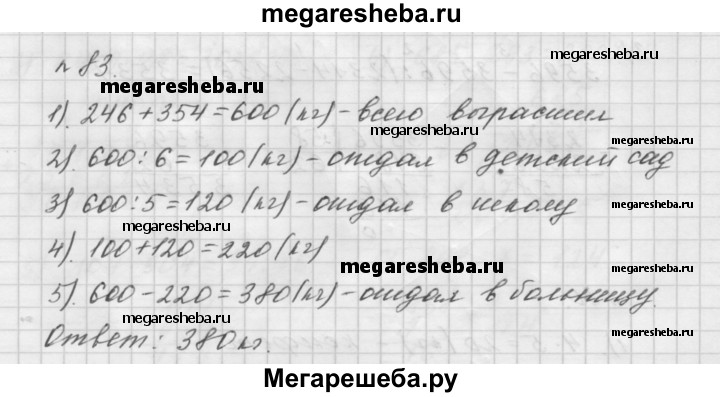 megaresheba.ru
№ 83.
megaresheba.ru
megaresheba.ru
1). 246+354=600 (кг) - всего вырастил
megaresheba.ru
2). 600:6=100 (кг) - отдал в детский сад
3) 600:5=120 (кг) - отдал в школу
megaresheba.ru
4). 100+120=220 (кг)
megaresheba.ru
5). 600-220=380 (кг) - отдал в больницу.
megaresheba.ru
megaresheba.ru
Ответ: 380 кг.
Мегарешеба.ру